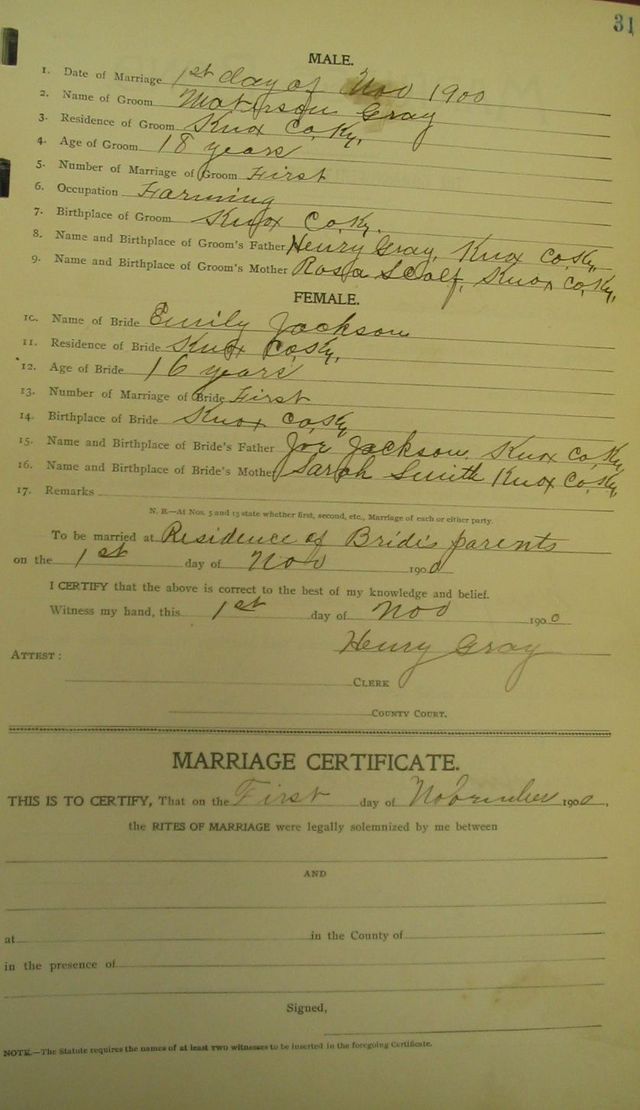 31
MALE.
1. Date of Marriage 1st day of Nov 1900
2. Name of Groom Materson Gray
3. Residence of Groom Knox Co, Ky,
4. Age of Groom 18 years
5. Number of Marriage of Groom First
6. Occupation Farming
7. Birthplace of Groom Knox Co, Ky.
8. Name and Birthplace of Groom's Father Henry Gray, Knox Co, Ky,
9. Name and Birthplace of Groom's Mother Rosa Scalf, Knox Co, Ky,
FEMALE.
10. Name of Bride Emily Jackson
11. Residence of Bride Knox Co, Ky,
12. Age of Bride 16 years
13. Number of Marriage of Bride First
14. Birthplace of Bride Knox Co, Ky
15. Name and Birthplace of Bride's Father Joe Jackson, Knox Co, Ky,
16. Name and Birthplace of Bride's Mother Sarah Smith Knox Co, Ky,
17. Remarks
N. B.—At Nos. 5 and 13 state whether first, second, etc., Marriage of each or either party.
To be married at Residence of Bride's parents
on the 1st day of Nov 1900
I CERTIFY that the above is correct to the best of my knowledge and belief.
Witness my hand, this 1st day of Nov 1900
Henry Gray
ATTEST:
CLERK
COUNTY COURT.
MARRIAGE CERTIFICATE.
THIS IS TO CERTIFY, That on the First day of November 1900,
the RITES OF MARRIAGE were legally solemnized by me between
AND
at in the County of
in the presence of
Signed,
NOTE.—The Statute requires the names of at least two witnesses to be inserted in the foregoing Certificate.